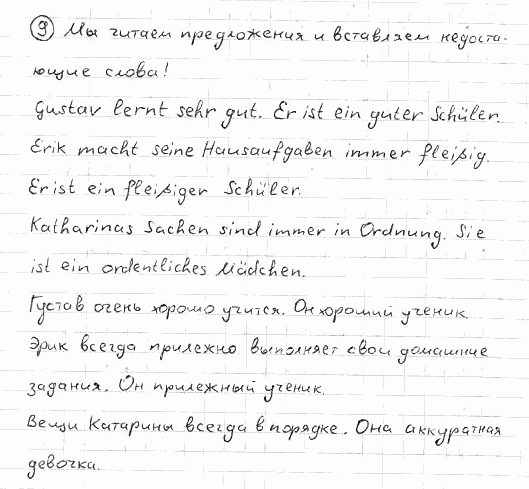 9 Мы читаем предложения и вставляем недоста-
ющие слова!
Gustav lernt sehr gut. Er ist ein guter Schüler.
Erik macht seine Hausaufgaben immer fleißig.
Er ist ein fleißiger Schüler.
Katharinas Sachen sind immer in Ordnung. Sie
ist ein ordentliches Mädchen.
Густав очень хорошо учится. Он хороший ученик.
Эрик всегда прилежно выполняет свои домашние
задания. Он прилежный ученик.
Вещи Катарины всегда в порядке. Она аккуратная
девочка.